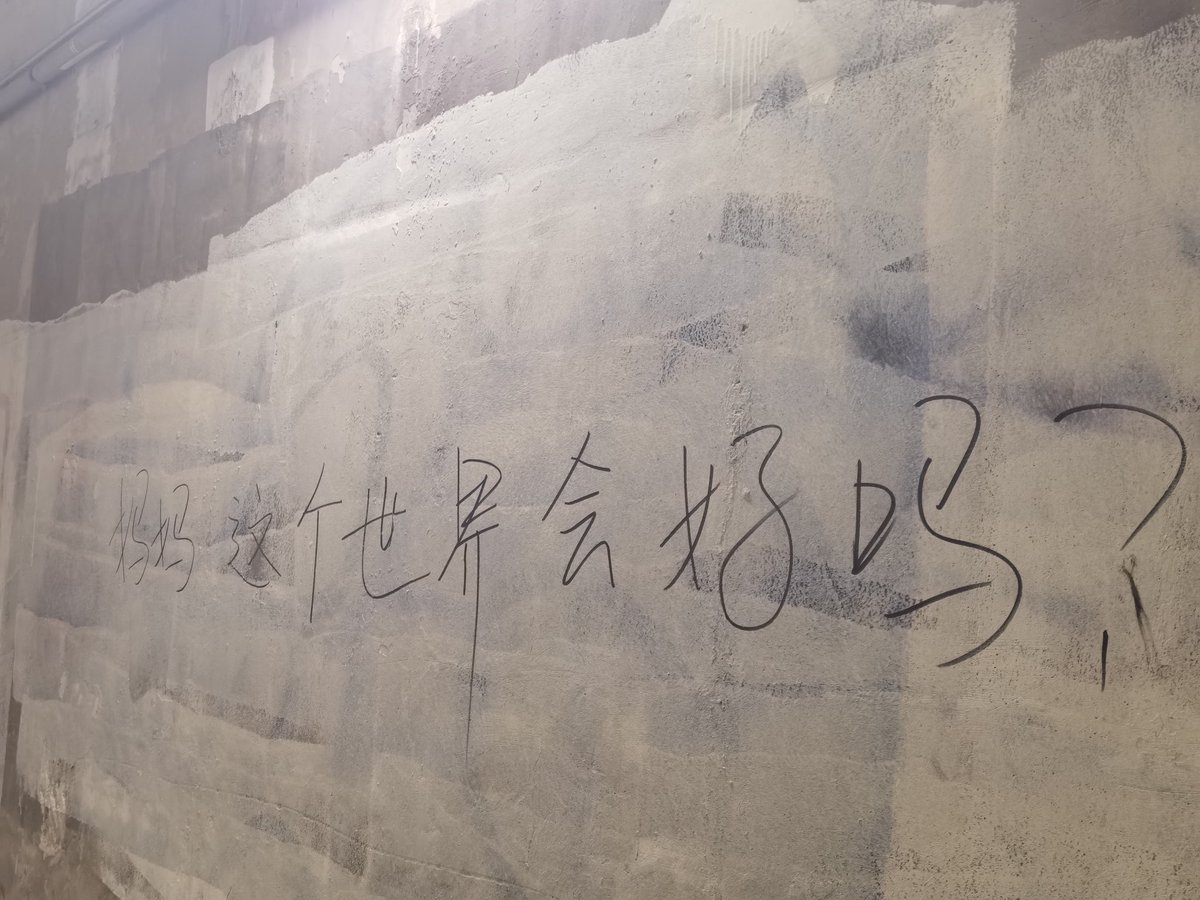 妈妈这个世界会好吗?